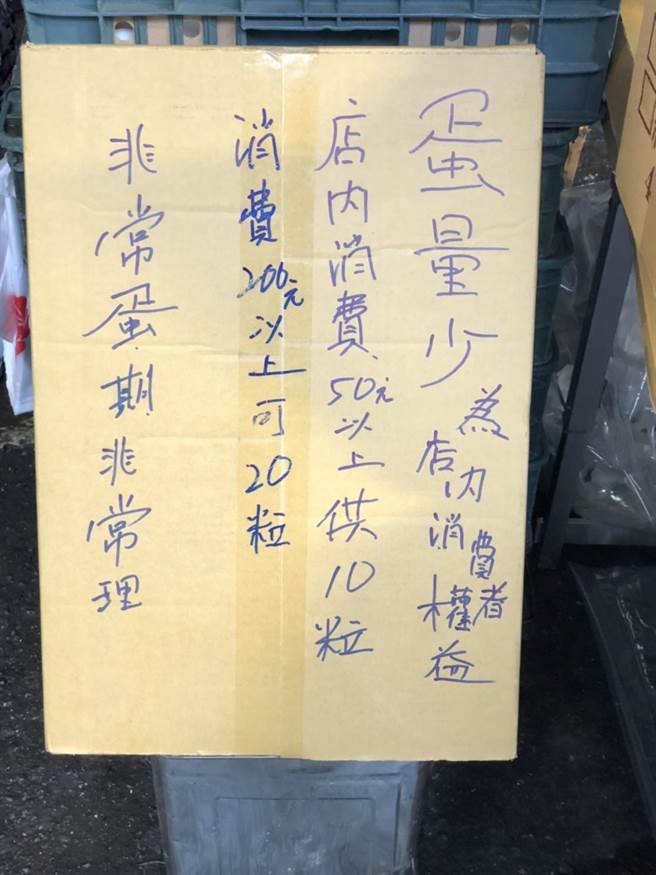 蛋量少為店內消費者權益
店內消費50元以上供10粒
消費200元以上可20粒
非常蛋期非常理